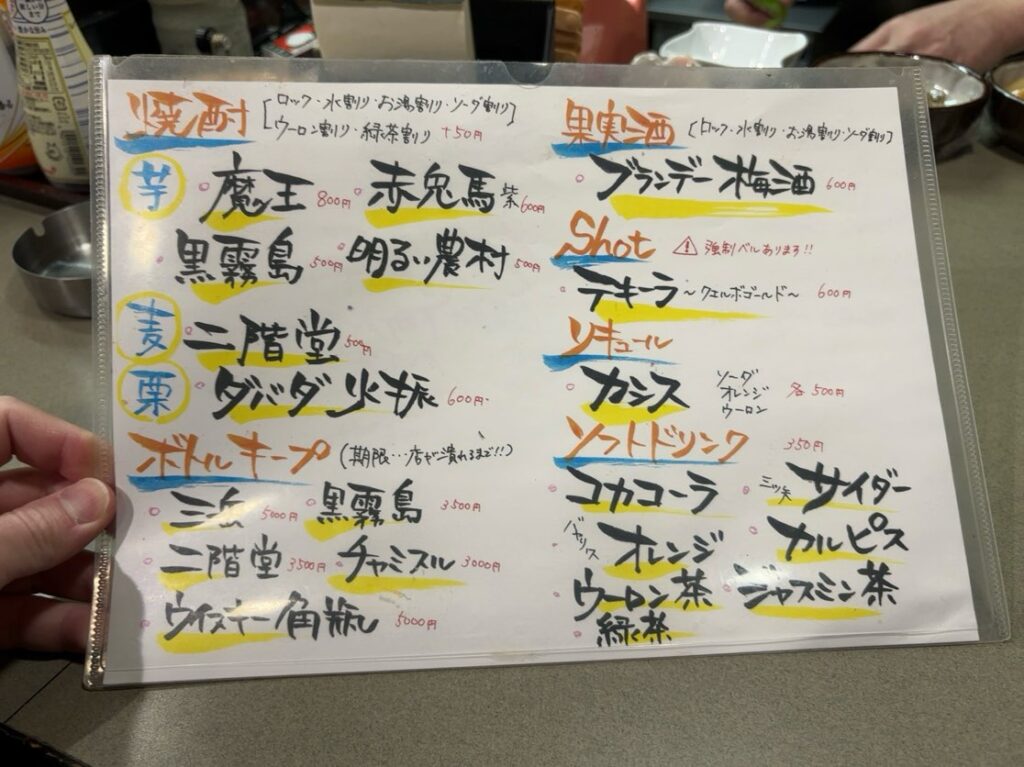 焼酎 [ロック・水割り・お湯割り・ソーダ割り]
[ウーロン割り・緑茶割り +50円
芋 魔王 800円 赤兎馬 紫 600円
黒霧島 500円 明るい農村 500円
麦 二階堂 500円
栗 ダバダ火振 600円
ボトルキープ (期限…店が潰れるまで!!)
三岳 5000円 黒霧島 3500円
二階堂 3500円 チャミスル 3000円
ウイスキー角瓶 5000円
果実酒 [ロック・水割り・お湯割り・ソーダ割り]
ブランデー梅酒 600円
Shot ⚠ 強制ベルあります!!
テキーラ ~クエルボゴールド~ 600円
リキュール
カシス ソーダ オレンジ ウーロン 各500円
ソフトドリンク 350円
コカコーラ 三ツ矢 サイダー
バヤリス オレンジ カルピス
ウーロン茶 ジャスミン茶
緑茶